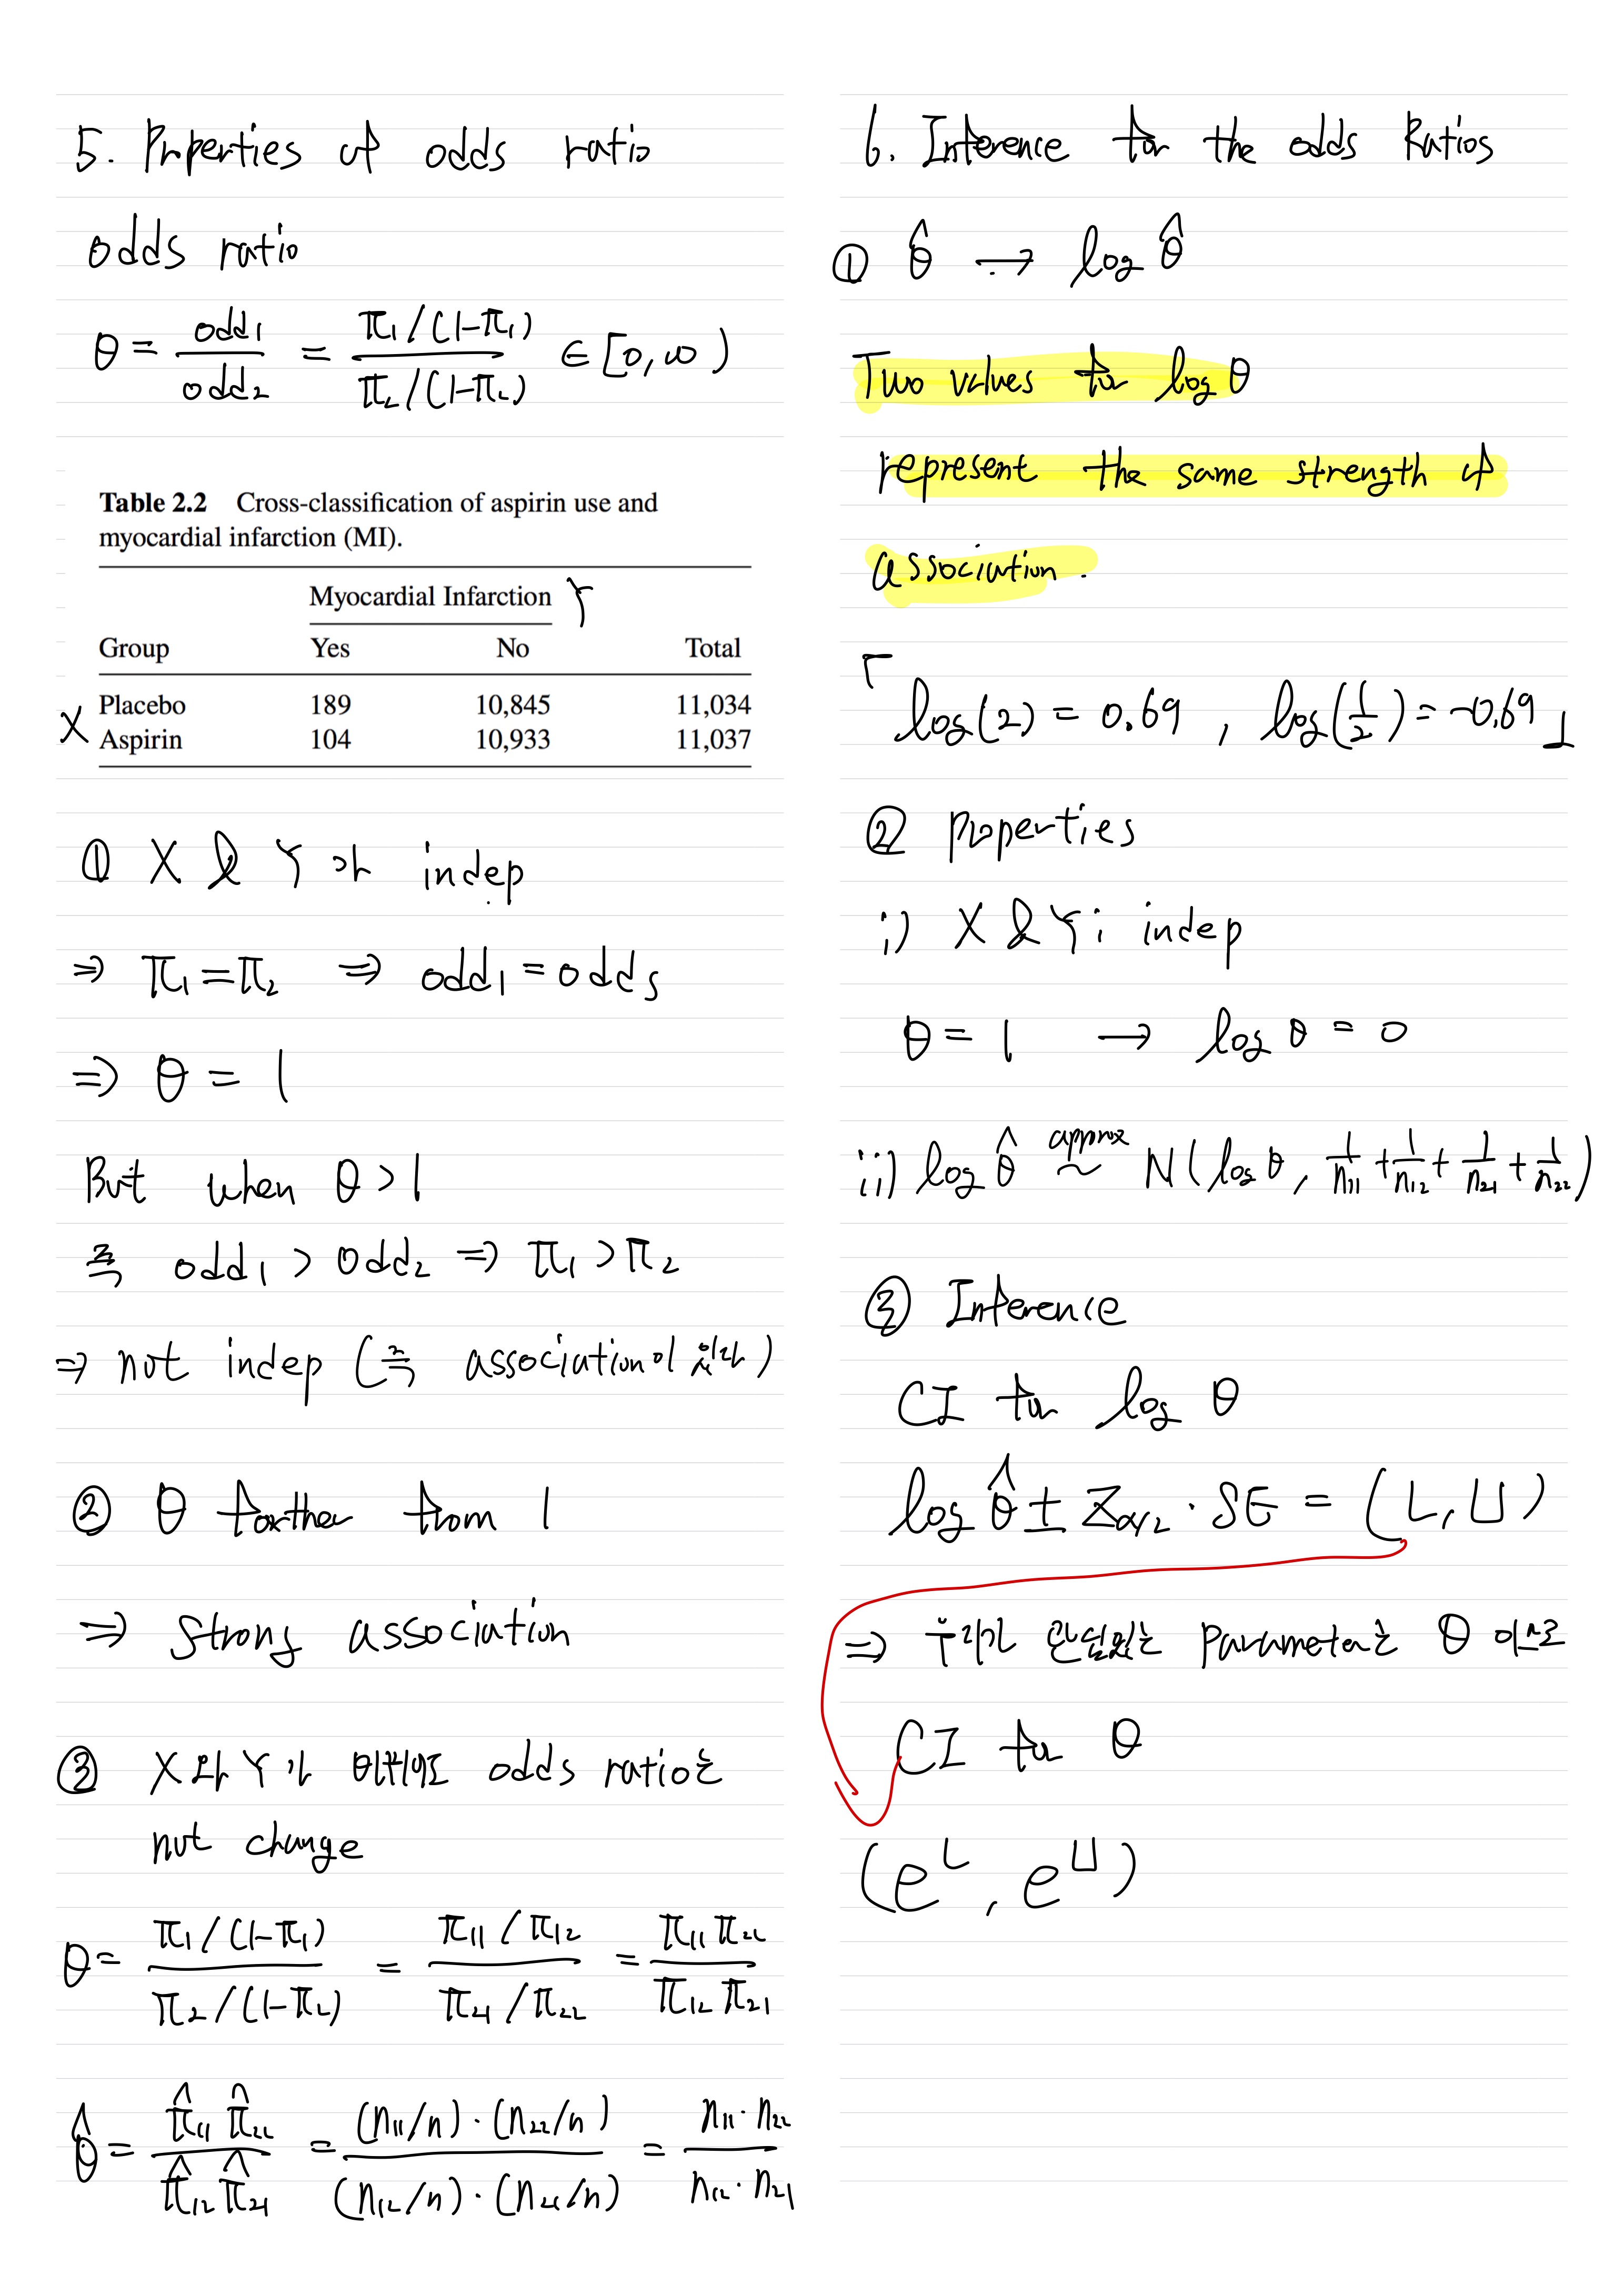 5. Properties of odds ratio
odds ratio
θ = odd₁ / odd₂ = π₁/(1-π₁) / π₂/(1-π₂) ∈ [0, ∞)
Table 2.2 Cross-classification of aspirin use and
myocardial infarction (MI).
Myocardial Infarction Y
Group Yes No Total
X
Placebo 189 10,845 11,034
Aspirin 104 10,933 11,037
① X & Y가 indep
⇒ π₁=π₂ ⇒ odd₁ = odds
⇒ θ = 1
But when θ > 1
즉 odd₁ > odd₂ ⇒ π₁ > π₂
⇒ not indep (즉 association이 있다)
② θ farther from 1
⇒ Strong association
③ X와 Y가 바뀌어도 odds ratio는
not change
θ = π₁/(1-π₁) / π₂/(1-π₂) = π₁₁/π₁₂ / π₂₁/π₂₂ = π₁₁π₂₂ / π₁₂π₂₁
θ̂ = π̂₁₁ π̂₂₂ / π̂₁₂ π̂₂₁ = (n₁₁/n)·(n₂₂/n) / (n₁₂/n)·(n₂₁/n) = n₁₁·n₂₂ / n₁₂·n₂₁
6. Inference for the odds Ratios
① θ̂ → log θ̂
Two values for log θ
represent the same strength of
association.
「log(2) = 0.69 , log(1/2) = -0.69」
② Properties
i) X & Y : indep
θ = 1 → log θ = 0
ii) log θ̂ approx ~ N( log θ, 1/n₁₁ + 1/n₁₂ + 1/n₂₁ + 1/n₂₂ )
③ Inference
CI for log θ
log θ̂ ± Z_α/2 · SE = (L, U)
⇒ 우리가 관심있는 parameter는 θ 이므로
CI for θ
(e^L , e^U)